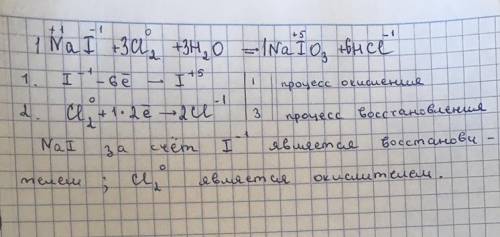 1 Na⁺¹ I⁻¹ + 3Cl₂⁰ + 3H₂O = 1NaI⁺⁵O₃ + 6HCl⁻¹
1. I⁻¹ - 6ē → I⁺⁵ | 1 | процесс окисления
2. Cl₂⁰ + 1·2ē → 2Cl⁻¹ | 3 | процесс восстановления
NaI за счёт I⁻¹ является восстанови-
телем ; Cl₂⁰ является окислителем.